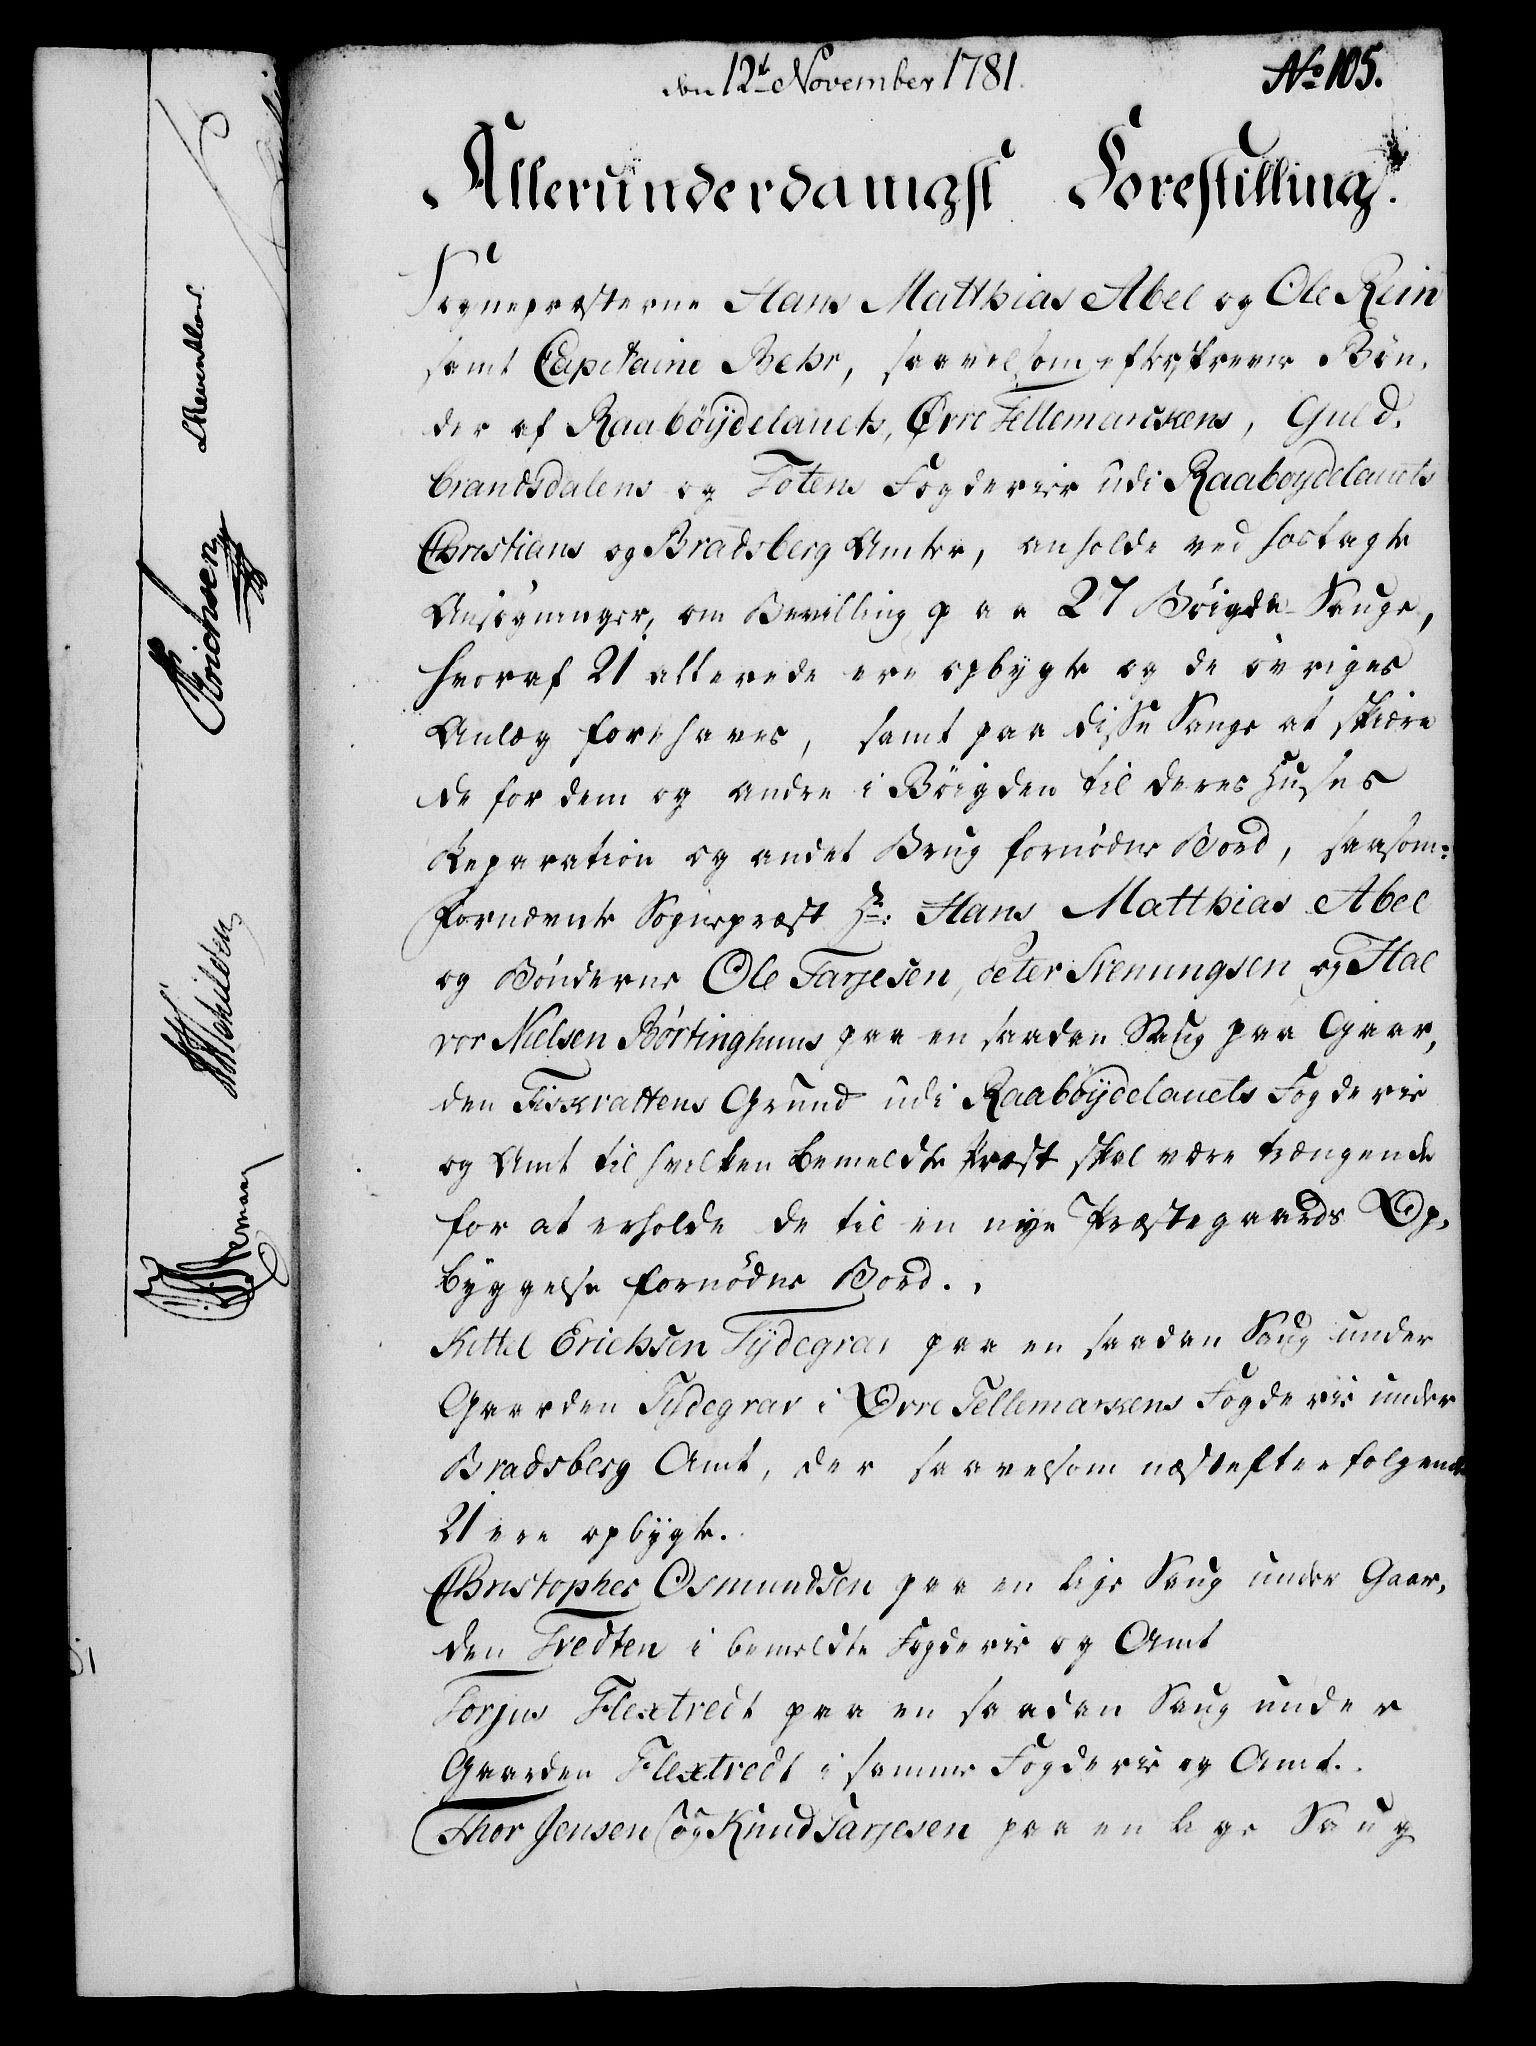 den 12t November 1781.
No 105.
Allerunderdanigst Forestilling.
Sognepræsterne Hans Matthias Abel og Ole Rein
samt Capitaine Behr, saavelsom efterskrevne Bøn,
der af Raabøÿdelauets, Øvre Tellemarckens, Guld,
brandsdalens og Totens Fogderier udi Raabøÿdelauets
Christians og Bradsberg Amter, anholde ved hostagte
Ansøgninger, om Bevilling paa 27 Böigde-Sauge,
hvoraf 21 allerede ere opbygte og de øvriges
Anlæg forehaves, samt paa disse Sauge at skiære
de for dem og andre i Böigden til deres Huses
Reparation og andet Brug fornödne Bord, saasom:
Fornævnte Sognepræst Hr: Hans Matthias Abel
og Bönderne Ole Tarjesen, Peter Svenungsen og Hal
vor Nielsen Börtinghuus paa en saadan Saug paa Gaar,
den Fiskvattens Grund udi Raaböÿdelauets Fogderie
og Amt til hvilken bemeldte Præst skal være trængende
for at erholde de til en nye Præstegaards Op,
byggelse fornödne Bord.
Kittel Erichsen Tÿdegrav paa en saadan Saug under
Gaarden Tÿdegrav i Øvre Tellemarkens Fogderie under
Bradsberg Amt, der saavelsom næstefterfølgende
21 ere opbygte.
Christopher Osmundsen paa en lige Saug under Gaar,
den Tvedten i bemeldte Fogderie og Amt
Torjus Flextvedt paa en saadan Saug under
Gaarden Flextvedt i samme Fogderie og Amt.
Thor Jensen og Knud Tarjesen paa en lige Saug
Reventlow.
Erichsen